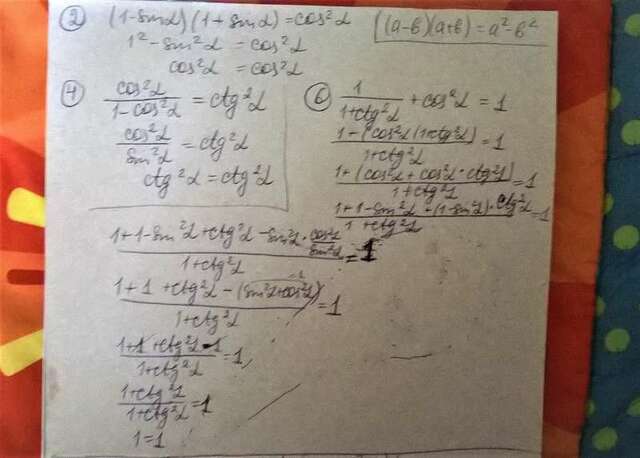 ② (1-sinα)(1+sinα)=cos²α
((a-b)(a+b)=a²-b²
1²-sin²α = cos²α
cos²α = cos²α
④ cos²α/1-cos²α = ctg²α
cos²α/sin²α = ctg²α
ctg²α = ctg²α
⑥ 1/1+ctg²α + cos²α = 1
1-(cos²α(1+ctg²α)/1+ctg²α = 1
1+(cos²α+cos²α·ctg²α)/1+ctg²α = 1
1+1-sin²α+(1-sin²α)·ctg²α/1+ctg²α = 1
1+1-sin²α+ctg²α-sin²α·cos²α/sin²α/1+ctg²α = 1
1+1+ctg²α-(sin²α+cos²α)/1+ctg²α = 1
1+1+ctg²α-1/1+ctg²α = 1
1+ctg²α/1+ctg²α = 1
1=1